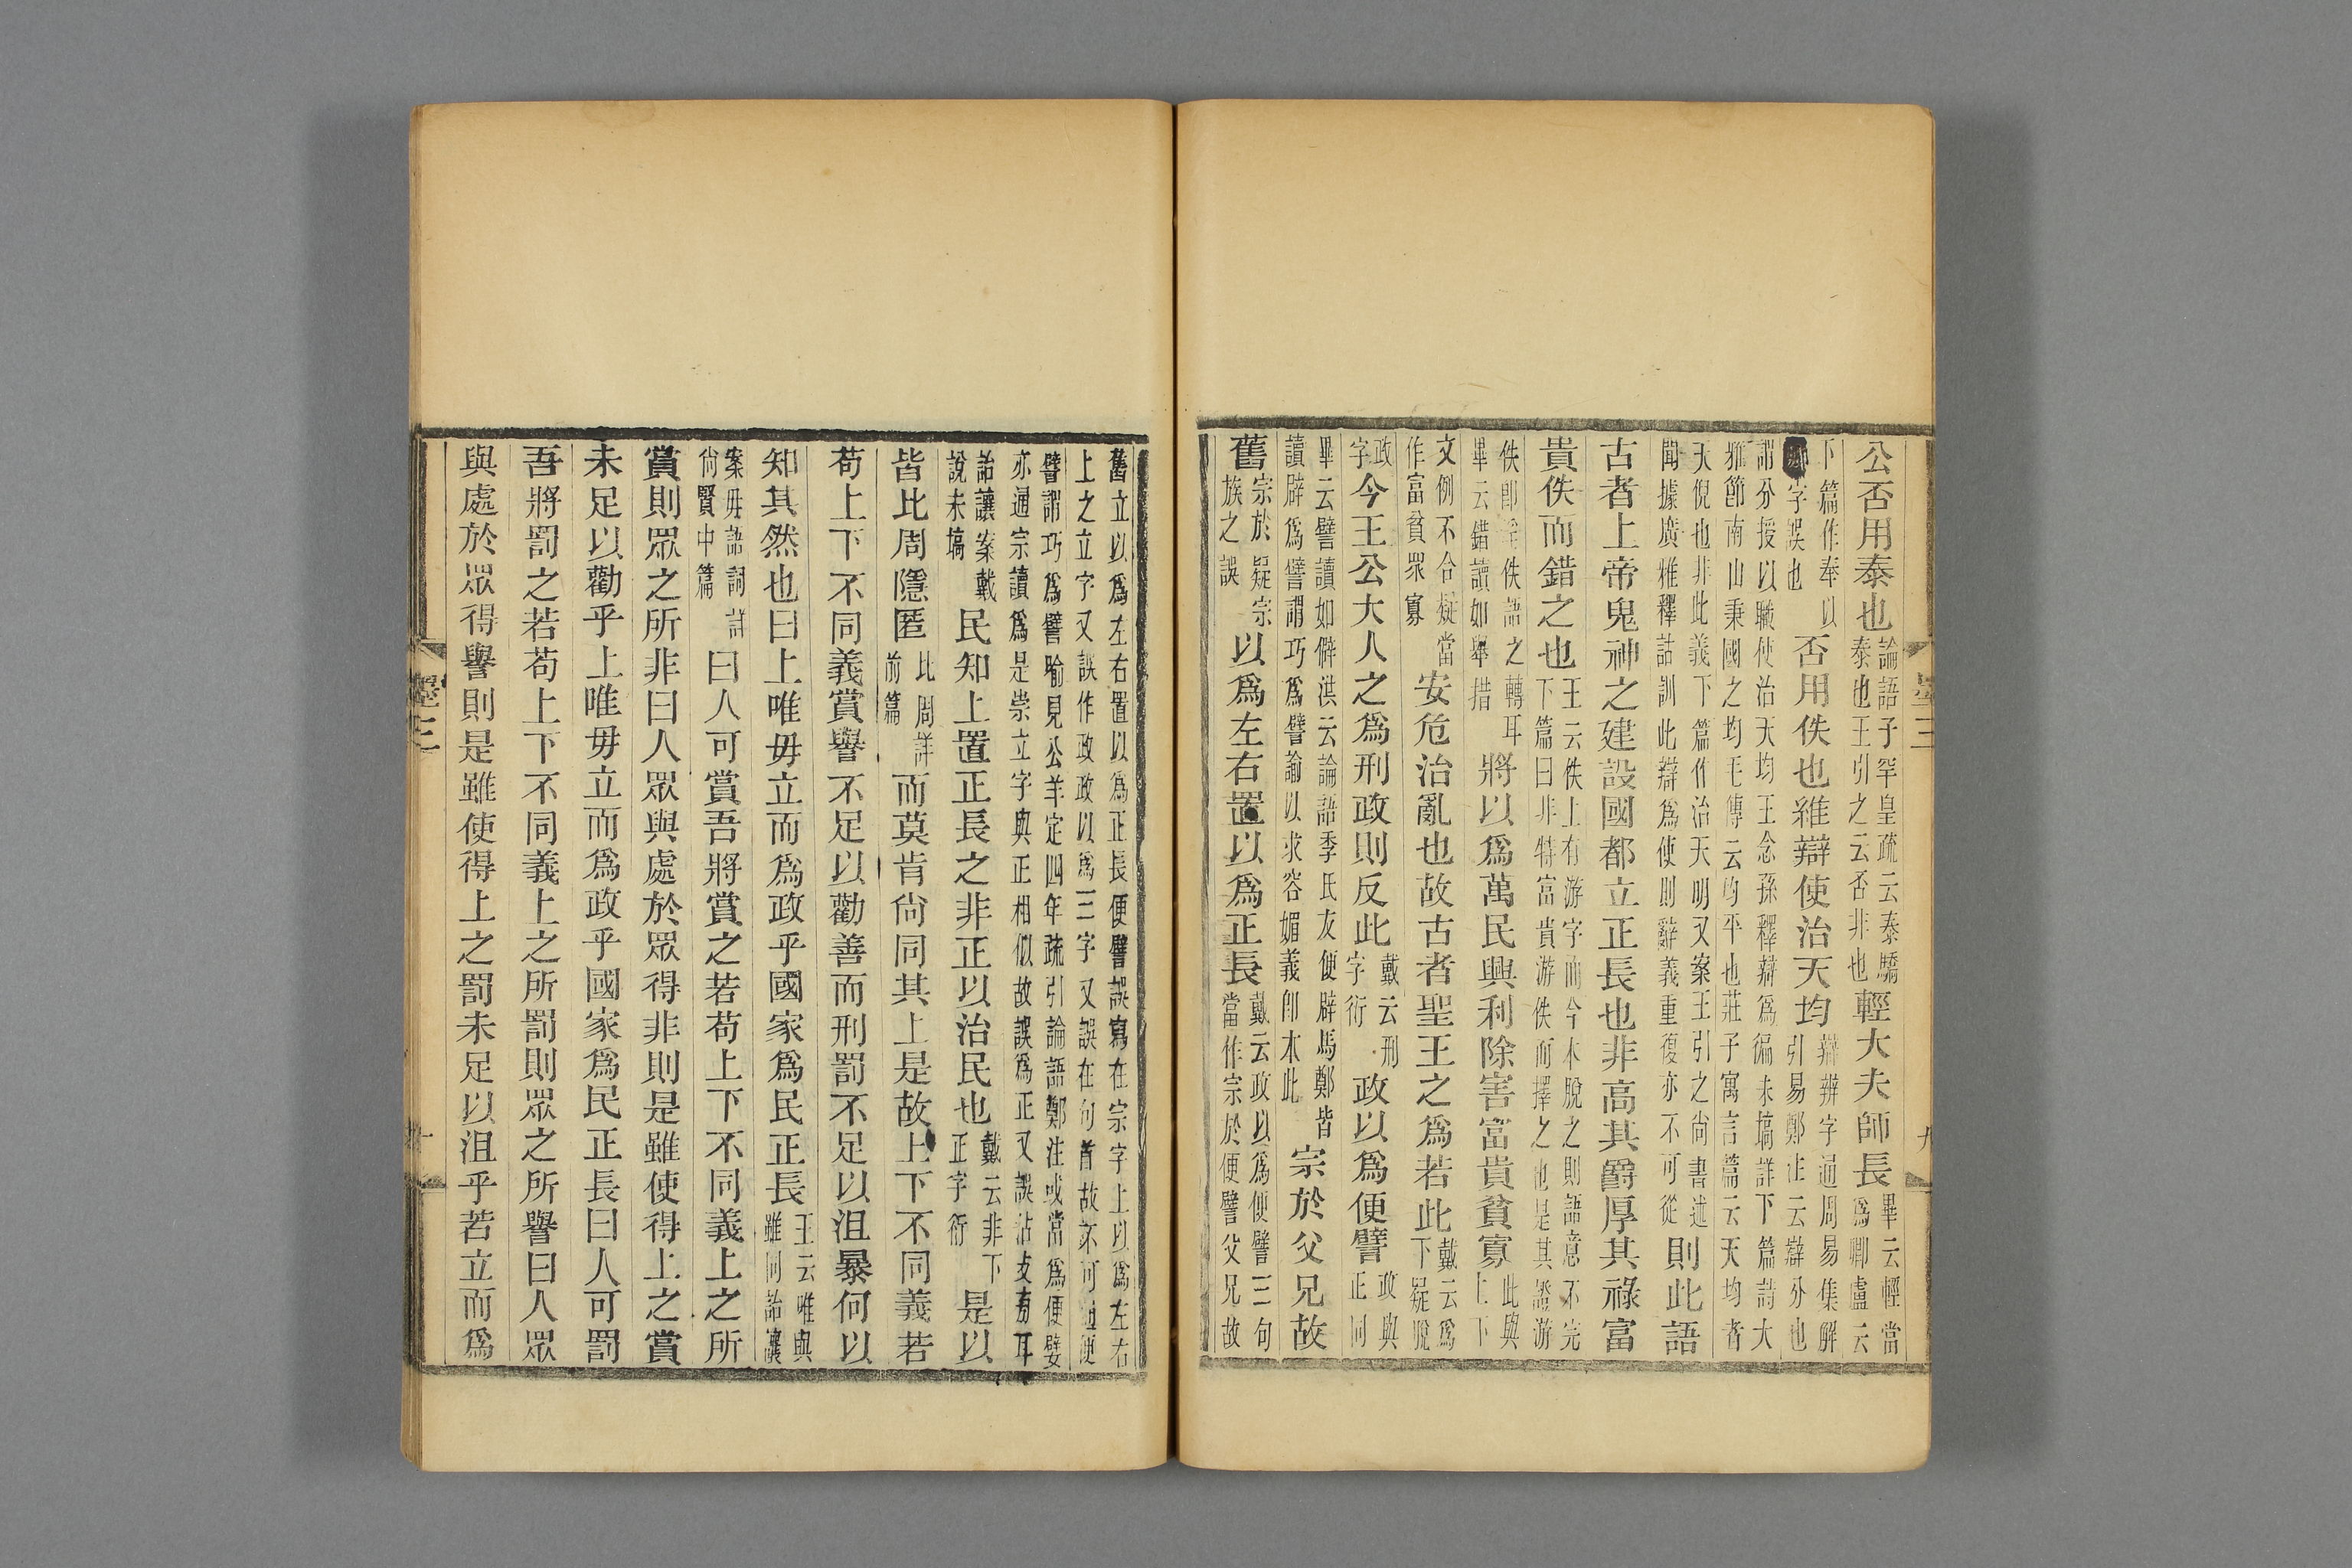 公否用泰也論語子罕皇疏云泰驕泰也王引之云否非也輕大夫師長畢云輕當爲卿盧云
下篇作奉以字誤也否用佚也維辯使治天均辯辨字通周易集解引易鄭注云辯分也
謂分授以職使治天均王念孫釋辯爲徧未塙詳下篇詩大雅節南山秉國之均毛傳云均平也莊子寓言篇云天均者
天倪也非此義下篇作治天明又案王引之尚書述聞據廣雅釋詁訓此辯爲使則辭義重復亦不可從則此語
古者上帝鬼神之建設國都立正長也非高其爵厚其祿富
貴佚而錯之也王云佚上有游字而今本脫之則語意不完下篇曰非特富貴游佚而擇之也是其證游
佚卽淫佚語之轉耳畢云錯讀如舉措將以爲萬民興利除害富貴貧寡此與上下
文例不合疑當作富貧眾寡安危治亂也故古者聖王之爲若此戴云爲下疑脫
政字今王公大人之爲刑政則反此戴云刑字衍政以爲便譬政與正同
畢云譬讀如僻淇云論語季氏友便辟馬鄭皆讀辟爲譬謂巧爲譬諭以求容媚義卽本此宗於父兄故
舊宗於疑宗族之誤以爲左右置以爲正長戴云政以爲便譬三句當作宗於便譬父兄故
墨三
九
舊立以爲左右置以爲正長便譬誤寫在宗字上以爲左右上之立字又誤作政政以爲三字又誤在句首故不可通便
譬謂巧爲譬喻見公羊定四年疏引論語鄭注或當爲便嬖亦通宗讀爲是崇立字與正相似故誤爲正又誤沾攴旁耳
詒讓案戴說未塙民知上置正長之非正以治民也戴云非下正字衍是以
皆比周隱匿比周詳前篇而莫肯尚同其上是故上下不同義若
苟上下不同義賞譽不足以勸善而刑罰不足以沮暴何以
知其然也曰上唯毋立而爲政乎國家爲民正長王云唯與雖同詒讓
案毋語詞詳尚賢中篇曰人可賞吾將賞之若苟上下不同義上之所
賞則眾之所非曰人眾與處於眾得非則是雖使得上之賞
未足以勸乎上唯毋立而爲政乎國家爲民正長曰人可罰
吾將罰之若苟上下不同義上之所罰則眾之所譽曰人眾
與處於眾得譽則是雖使得上之罰未足以沮乎若立而爲
墨三
十